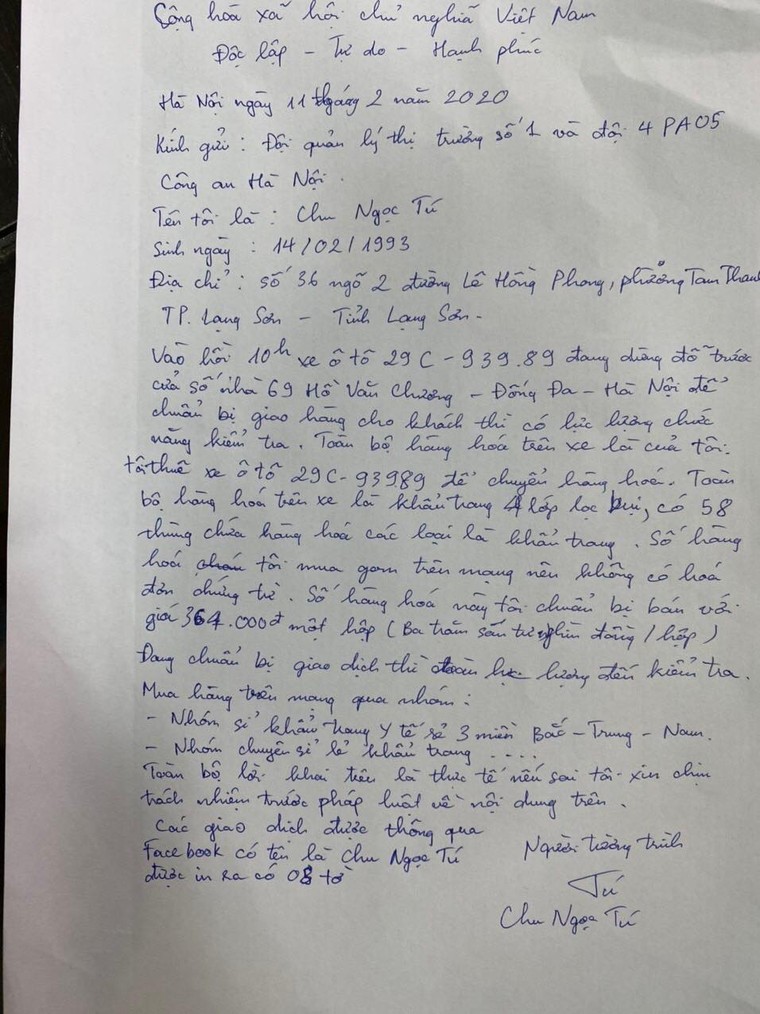 Cộng hòa xã hội chủ nghĩa Việt Nam
Độc lập - Tự do - Hạnh phúc
Hà Nội ngày 11 tháng 2 năm 2020
Kính gửi : Đội quản lý thị trường số 1 và đội 4 PA05
Công an Hà Nội .
Tên tôi là : Chu Ngọc Tú
Sinh ngày : 14/02/1993
Địa chỉ : số 36 ngõ 2 đường Lê Hồng Phong, phường Tam Thanh
TP. Lạng Sơn - Tỉnh Lạng Sơn -
Vào hồi 10h xe ô tô 29C-939.89 đang dừng đỗ trước
cửa số nhà 69 Hồ Văn Chương - Đống Đa - Hà Nội để
chuẩn bị giao hàng cho khách thì có lực lượng chức
năng kiểm tra . Toàn bộ hàng hoá trên xe là của tôi.
tôi thuê xe ô tô 29C-93989 để chuyển hàng hoá. Toàn
bộ hàng hoá trên xe là khẩu trang 4 lớp lọc bụi, có 58
thùng chứa hàng hoá các loại là khẩu trang . Số hàng
hoá tôi mua gom trên mạng nên không có hoá
đơn chứng từ . Số hàng hoá này tôi chuẩn bị bán với
giá 364.000đ một hộp ( Ba trăm sáu tư nghìn đồng / hộp )
Đang chuẩn bị giao dịch thì lực lượng đến kiểm tra .
Mua hàng trên mạng qua nhóm :
- Nhóm sỉ khẩu trang y tế sẻ 3 miền Bắc - Trung - Nam .
- Nhóm chuyên sỉ lẻ khẩu trang ....
Toàn bộ lời khai trên là thực tế nếu sai tôi xin chịu
trách nhiệm trước pháp luật về nội dung trên .
Các giao dịch được thông qua
Facebook có tên là Chu Ngọc Tú
được in ra có 08 tờ
Người tường trình
Tú
Chu Ngọc Tú